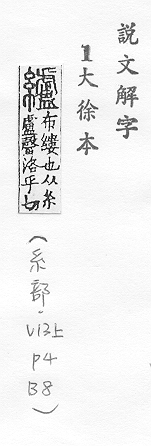 說文解字
1大徐本
纑
布縷也从糸
盧聲洛乎切
(糸部.V13上
P4
B8)